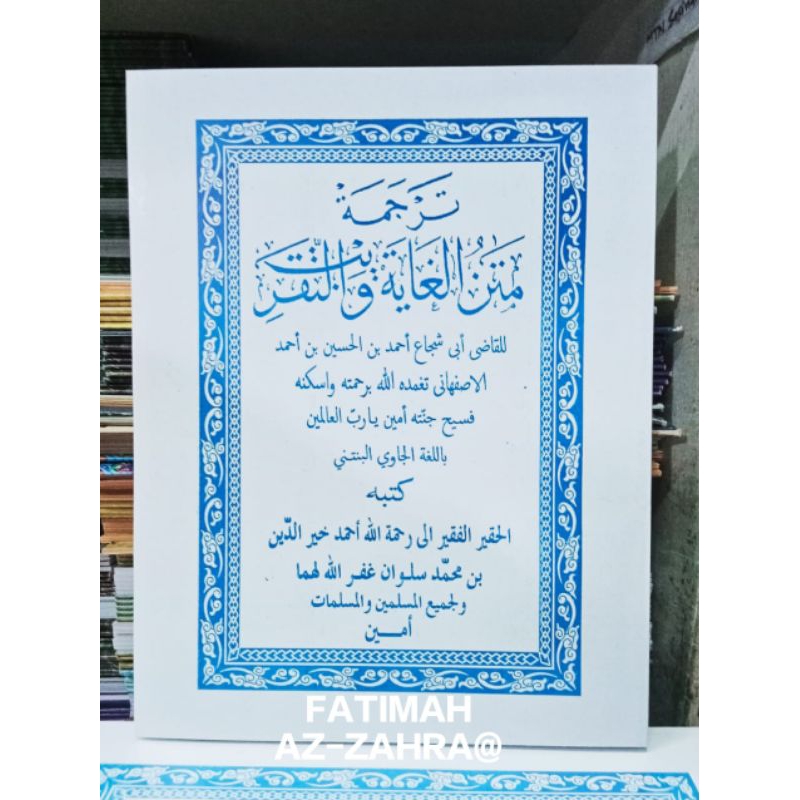 تَرْجَمَةْ
مَتْنُ الْغَايَةْ وَالتَّقْرِيْبْ
للقاضى أبى شجاع أحمد بن الحسين بن أحمد
الاصفهانى تغمده الله برحمته واسكنه
فسيح جنّته أمين يا ربّ العالمين
باللغة الجاوي البنتني
كتبه
الحقير الفقير الى رحمة الله أحمد خير الدّين
بن محمّد سلوان غفر الله لهما
ولجميع المسلمين والمسلمات
أمـــين
FATIMAH
AZ-ZAHRA@